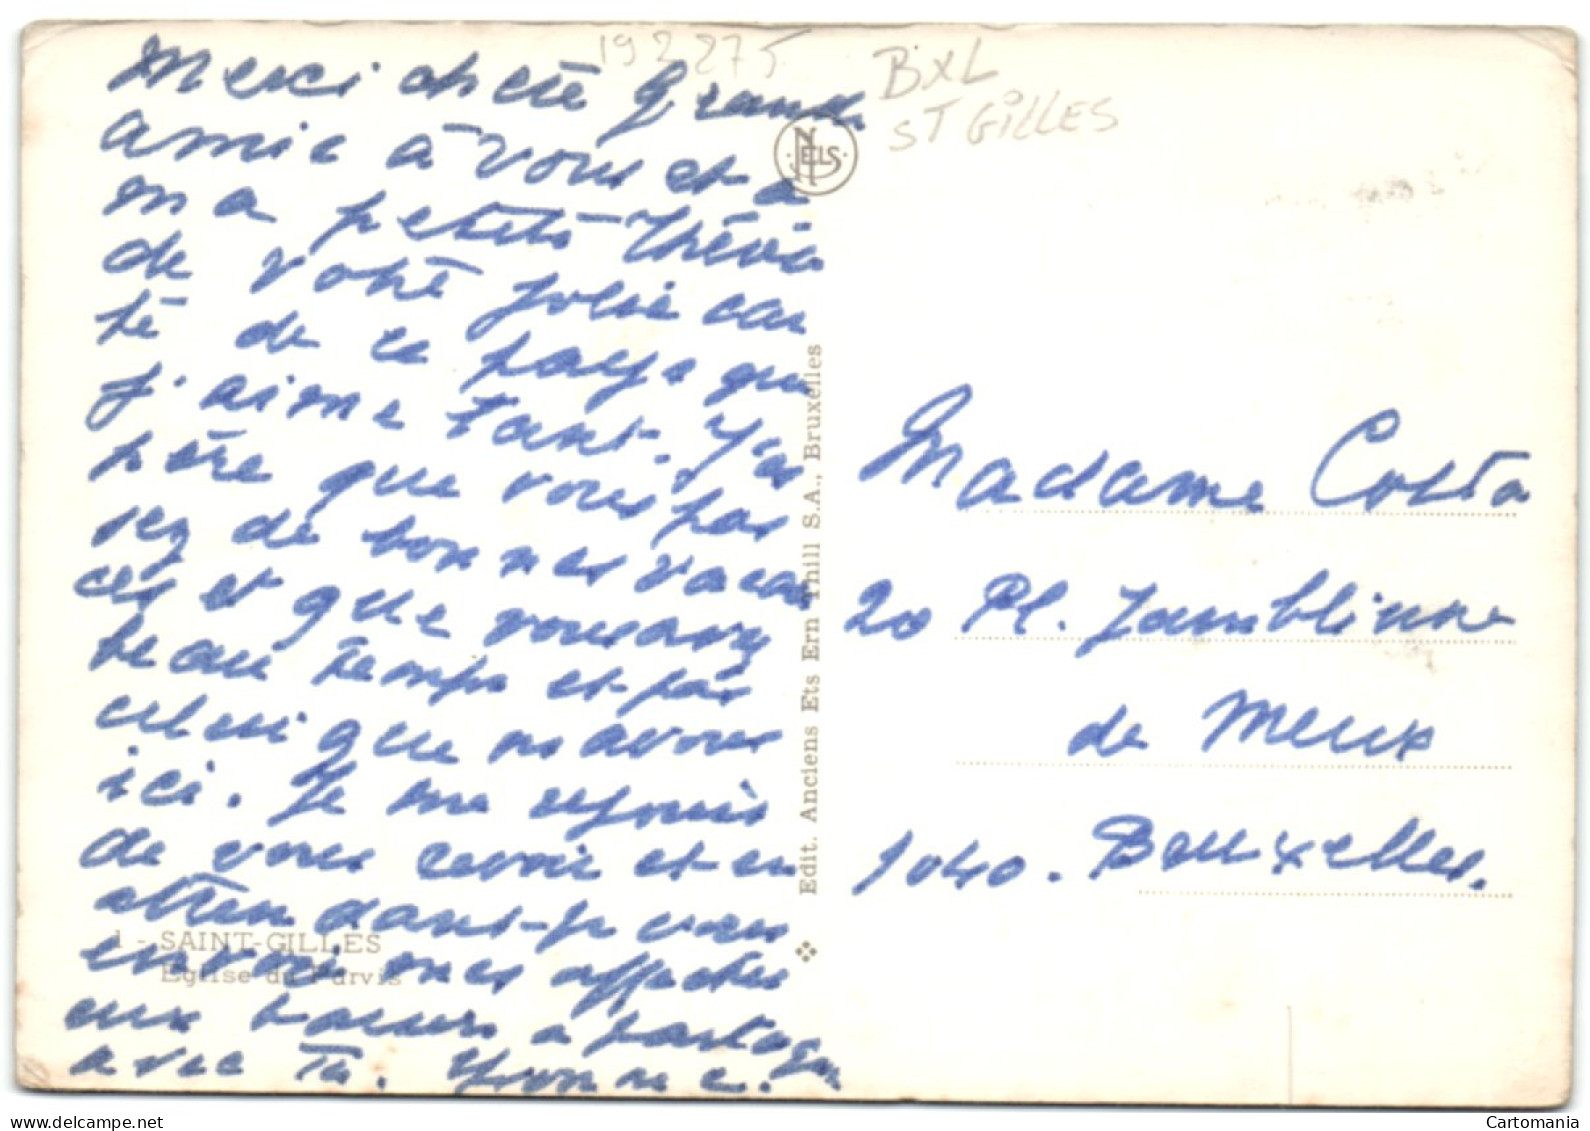 192275
BXL
ST GILLES
NELS
Merci chère Grande
amie à vous et à
ma petite Thérèse
de votre jolie car
te de ce pays que
j'aime tant. J'es
père que vous pas
sez de bonnes vacan
ces et que vous avez
beau temps et pas
celui que ns avons
ici. Je me réjouis
de vous revoir et en
atten dant je vous
envoie mes affectu
eux baisers à partager
avec Tu. Yvonne.
1 - SAINT-GILLES
Eglise du Parvis
Edit. Anciens Ets Ern Thill S.A., Bruxelles
Madame Costa
20 Pl. Jamblinne
de Meux
1040. Bruxelles.
Cartomania